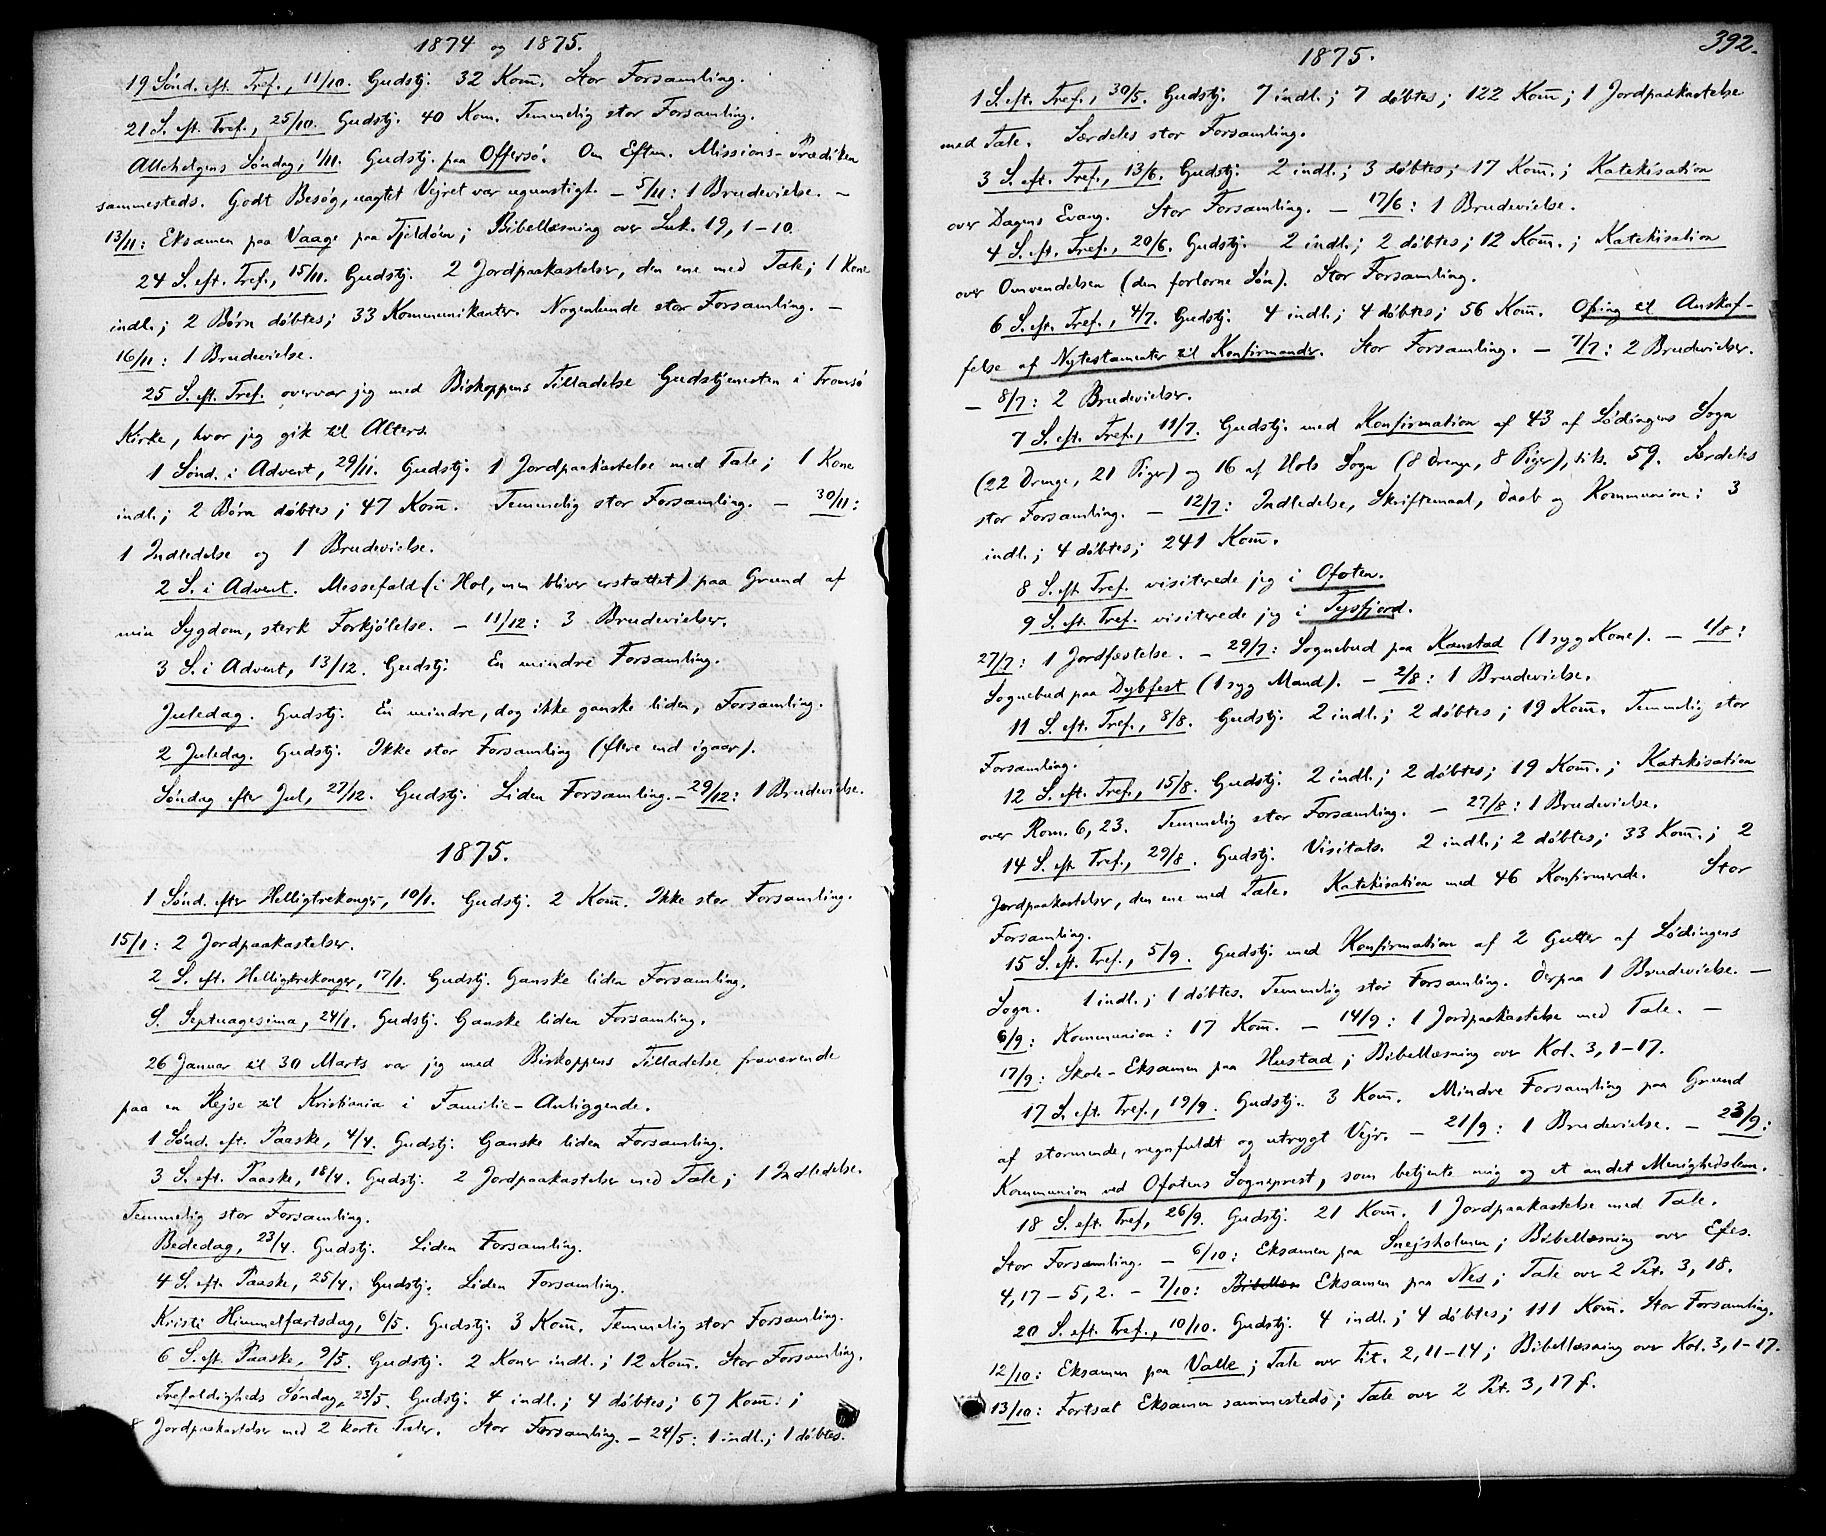 1874 og 1875.
19 Sönd. eft. Tref., 11/10. Gudstj. 32 Kom̅. Stor Forsamling.
21 S. eft. Tref., 25/10. Gudstj. 40 Kom. Temmelig stor Forsamling.
Allehelgens Söndag, 1/11. Gudstj. paa Offersö. Om Eftm. Missions-Prædiken
sammesteds. Godt Besög, uagtet Vejret var ugunstigt. – 5/11: 1 Brudevielse. –
13/11: Eksamen paa Vaage paa Tjeldöen; Bibellæsning over Luk. 19, 1–10.
24 S. eft. Tref., 15/11. Gudstj. 2 Jordpaakastelser, den ene med Tale; 1 Kone
indl.; 2 Börn döbtes; 33 Kommunikanter. Nogenlunde stor Forsamling. –
16/11: 1 Brudevielse.
25 S. eft. Tref. overvar jeg med Biskoppens Tilladelse Gudstjenesten i Tromsö
Kirke, hvor jeg gik til Alters.
1 Sönd. i Advent, 29/11. Gudstj. 1 Jordpaakastelse med Tale; 1 Kone
indl.; 2 Börn döbtes; 47 Kom̅. Temmelig stor Forsamling. – 30/11:
1 Indledelse og 1 Brudevielse.
2 S. i Advent. Messefald (i Hol, men bliver erstattet) paa Grund af
min Sygdom, sterk Forkjölelse. – 11/12: 3 Brudevielser.
3 S. i Advent, 13/12. Gudstj. En mindre Forsamling.
Juledag. Gudstj. En mindre, dog ikke ganske liden, Forsamling.
2 Juledag. Gudstj. Ikke stor Forsamling (flere end igaar).
Söndag efter Jul, 27/12. Gudstj. Liden Forsamling. – 29/12: 1 Brudevielse.
1875.
1 Sönd. efter Helligtrekonger, 10/1. Gudstj. 2 Kom̅. Ikke stor Forsamling.
15/1: 2 Jordpaakastelser.
2 S. eft. Helligtrekonger, 17/1. Gudstj. Ganske liden Forsamling.
S. Septuagesima, 24/1. Gudstj. Ganske liden Forsamling.
26 Januar til 30 Marts var jeg med Biskoppens Tilladelse fraværende
paa en Rejse til Kristiania i Familie-Anliggende.
1 Sönd. eft. Paaske, 4/4. Gudstj. Ganske liden Forsamling.
3 S. eft. Paaske, 18/4. Gudstj. 2 Jordpaakastelser med Tale; 1 Indledelse.
Temmelig stor Forsamling.
Bededag, 23/4. Gudstj. Liden Forsamling.
4 S. eft. Paaske, 25/4. Gudstj. Liden Forsamling.
Kristi Himmelfartsdag, 6/5. Gudstj. 3 Kom̅. Temmelig stor Forsamling.
6 S. eft. Paaske, 9/5. Gudstj. 2 Koner indl.; 12 Kom̅. Stor Forsamling.
Trefoldigheds Söndag, 23/5. Gudstj. 4 indl.; 4 döbtes; 67 Kom̅.;
Jordpaakastelser med 2 korte Taler. Stor Forsamling. – 24/5: 1 indl.; 1 döbtes.
392.
1875.
1 S. eft. Tref., 30/5. Gudstj. 7 indl.; 7 döbtes; 122 Kom̅; 1 Jordpaakastelse
med Tale. Særdeles stor Forsamling.
3 S. eft. Tref., 13/6. Gudstj. 2 indl.; 3 döbtes; 17 Kom̅.; Katekisation
over Dagens Evang. Stor Forsamling. – 17/6: 1 Brudevielse.
4 S. eft. Tref., 20/6. Gudstj. 2 indl.; 2 döbtes; 12 Kom̅.; Katekisation
over Omvendelsen (den forlorne Sön). Stor Forsamling.
6 S. eft. Tref., 4/7. Gudstj. 4 indl.; 4 döbtes; 56 Kom̅. Ofring til Anskaf-
felse af Nytestamenter til Konfirmander. Stor Forsamling. – 7/7: 2 Brudevielser.
– 8/7: 2 Brudevielser.
7 S. eft. Tref., 11/7. Gudstj. med Konfirmation af 43 af Lödingens Sogn
(22 Drenge, 21 Piger) og 16 af Hols Sogn (8 Drenge, 8 Piger), tils. 59. Særdeles
stor Forsamling. – 12/7: Indledelse, Skriftemaal, Daab og Kommunion: 3
indl.; 4 döbtes; 241 Kom̅.
8 S. eft. Tref. visiterede jeg i Ofoten.
9 S. eft. Tref. visiterede jeg i Tysfjord.
27/7: 1 Jordfæstelse. – 29/7: Sognebud paa Kanstad (1 syg Kone). – 1/8:
Sognebud paa Dybfest (1 syg Mand). – 2/8: 1 Brudevielse.
11 S. eft. Tref., 8/8. Gudstj. 2 indl.; 2 döbtes; 19 Kom̅. Temmelig stor
Forsamling.
12 S. eft. Tref., 15/8. Gudstj. 2 indl.; 2 döbtes; 19 Kom̅.; Katekisation
over Rom. 6, 23. Temmelig stor Forsamling. – 27/8: 1 Brudevielse.
14 S. eft. Tref., 29/8. Gudstj. Visitats. 2 indl.; 2 döbtes; 33 Kom̅.; 2
Jordpaakastelser, den ene med Tale. Katekisation med 46 Konfirmerede. Stor
Forsamling.
15 S. eft. Tref., 5/9. Gudstj. med Konfirmation af 2 Gutter af Lödingens
Sogn. 1 indl.; 1 döbtes. Temmelig stor Forsamling. Derpaa 1 Brudevielse. –
6/9: Kommunion: 17 Kom̅. – 14/9: 1 Jordpaakastelse med Tale. –
17/9: Skole-Eksamen paa Hustad; Bibellæsning over Kol. 3, 1–17.
17 S. eft. Tref., 19/9. Gudstj. 3 Kom̅. Mindre Forsamling paa Grund
af stormende, regnfuldt og utrygt Vejr. – 21/9: 1 Brudevielse. – 23/9:
Kommunion ved Ofotens Sogneprest, som betjente mig og et andet Menighedslem.
18 S. eft. Tref, 26/9. Gudstj. 21 Kom̅. 1 Jordpaakastelse med Tale.
Stor Forsamling. – 6/10: Eksamen paa Snejsholmen; Bibellæsning over Efes.
4, 17 – 5, 2. – 7/10: Bibellæs Eksamen paa Nes; Tale over 2 Pet. 3, 18.
20 S. eft. Tref., 10/10. Gudstj. 4 indl.; 4 döbtes; 111 Kom̅. Stor Forsamling.
12/10: Eksamen paa Valle; Tale over Tit. 2, 11–14; Bibellæsning over Kol. 3, 1–17.
13/10: Fortsat Eksamen sammesteds; Tale over 2 Pet. 3, 17 f.